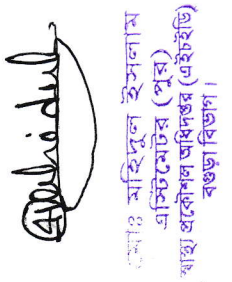 মোঃ মহিদুল ইসলাম
এস্টিমেটর (পুর)
স্বাস্থ্য প্রকৌশল অধিদপ্তর (এইচইডি)
বগুড়া বিভাগ।